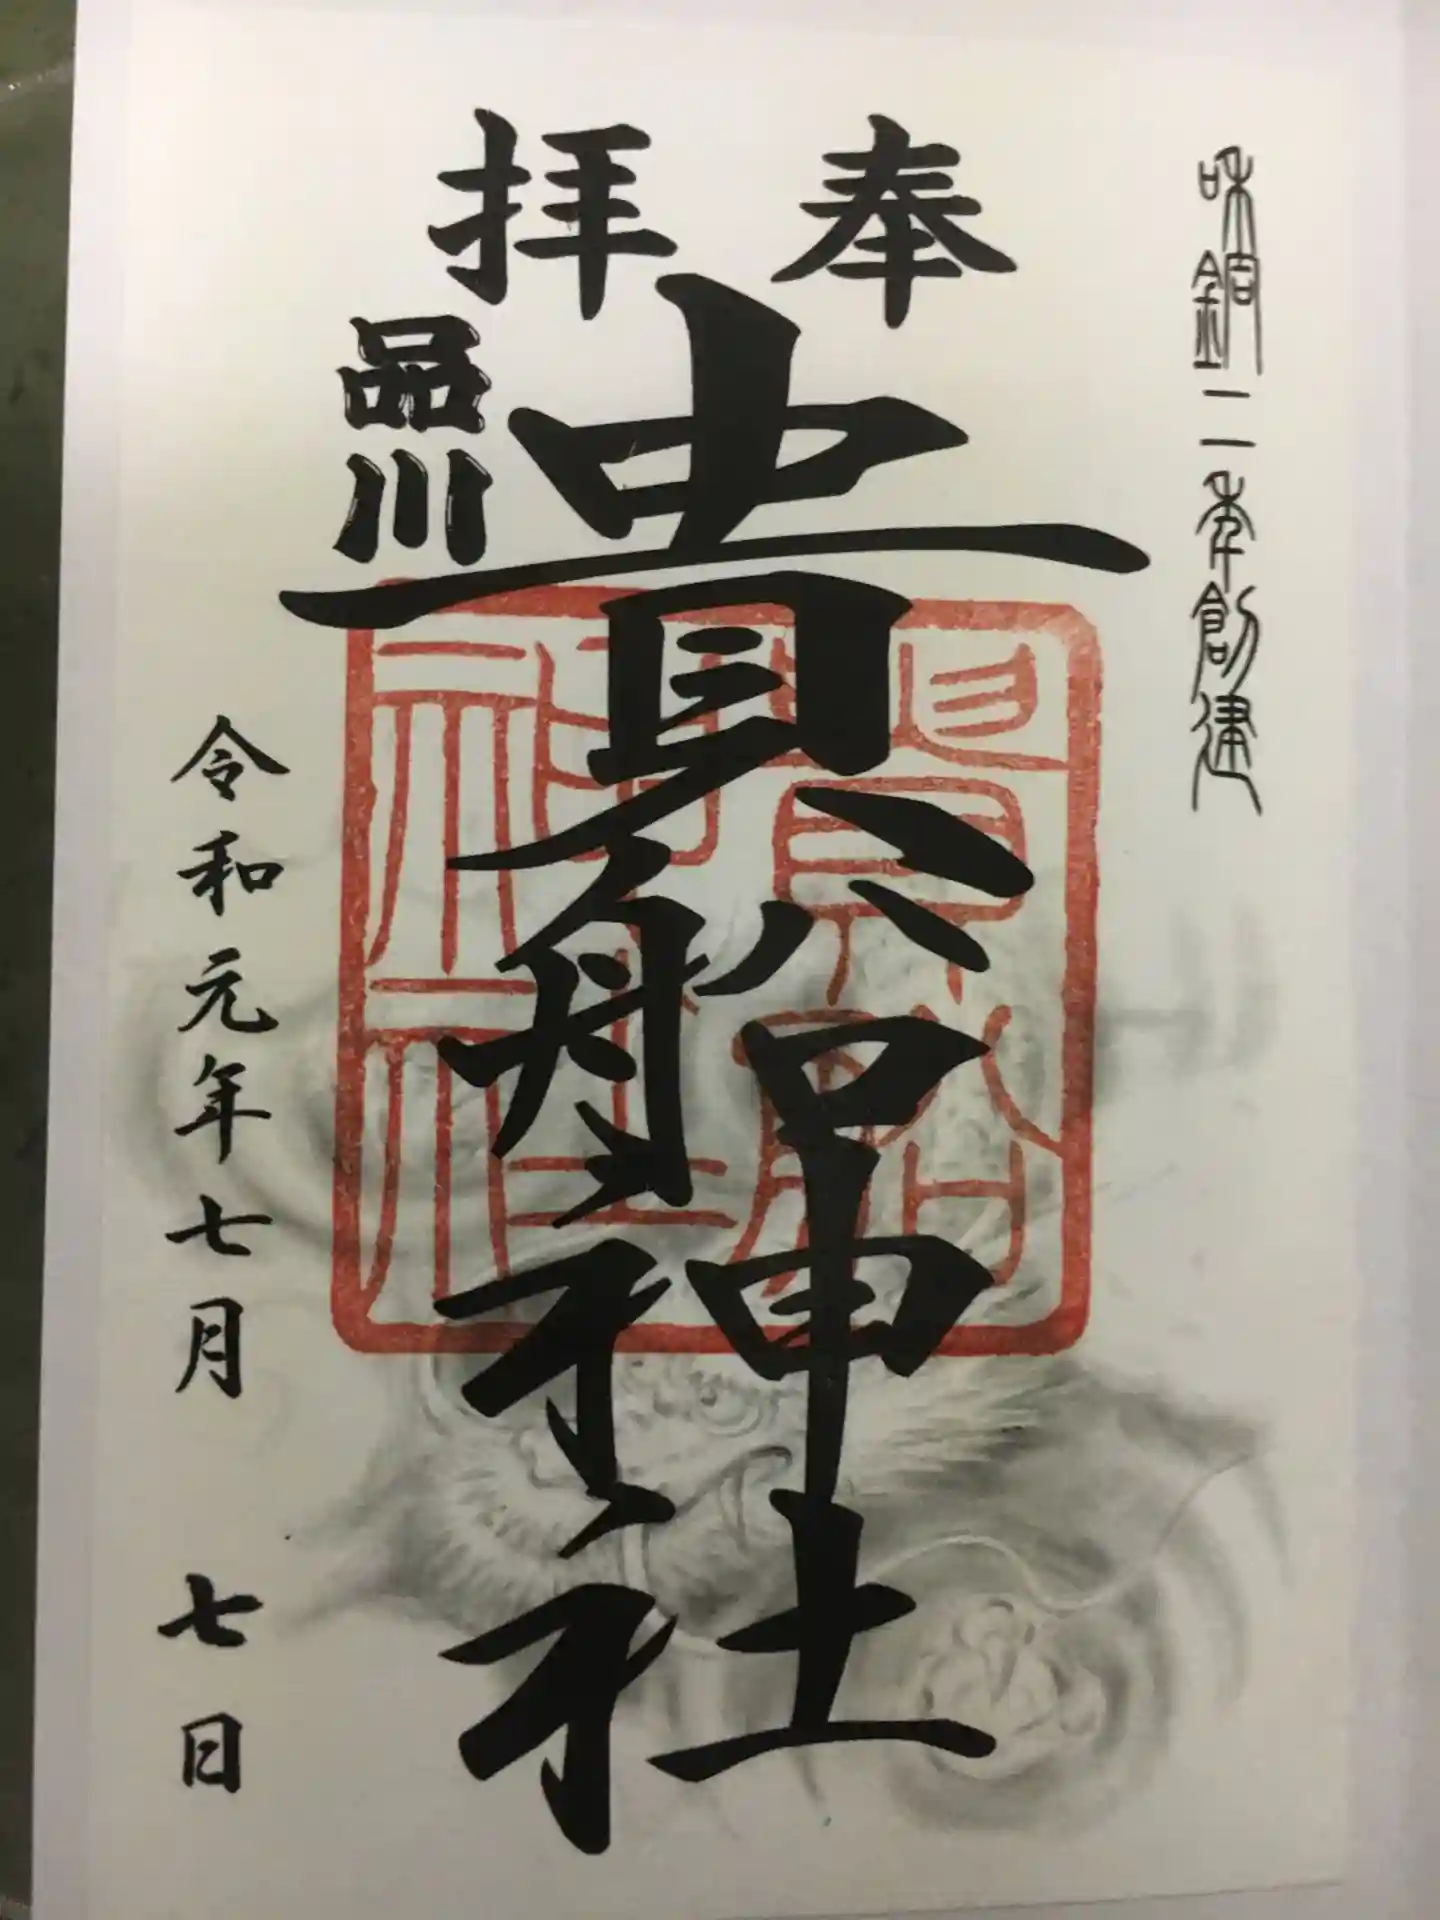 和銅二年創建
奉拝
品川
貴船神社
貴船神社
令和元年七月七日